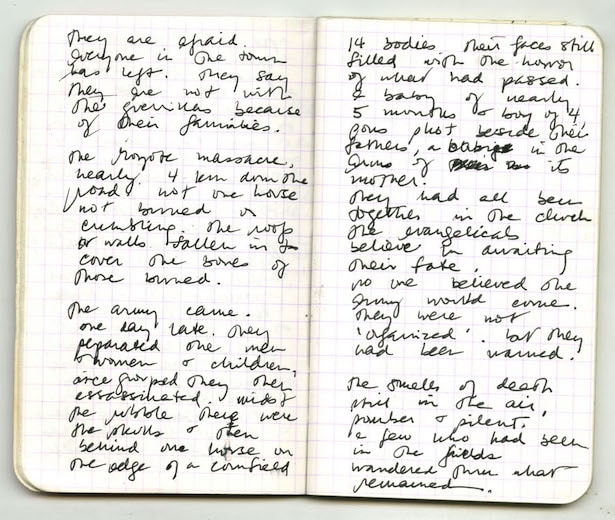 they are afraid
everyone in the town
has left. they say
they are not with
the guerrillas because
of their families.
the Mozote massacre,
nearly 4 km down the
road not one house
not burned or
crumbling. the roofs
or walls fallen in to
cover the bones of
those burned.
the army came.
one day late. they
separated the men
women & children,
once grouped they then
assassinated. midst
the rubble there were
the skulls & then
behind one house on
the edge of a cornfield
14 bodies their faces still
filled with the horror
of what had passed.
a baby of nearly
5 months a boy of 4,
sons shot beside their
fathers, a in the
arms of its
mother.
they had all been
together in the church
the evangelicals
believe in awaiting
their fate,
no one believed the
army would come.
they were not
'organized'. but they
had been warned.
the smells of death
still in the air,
somber & silent,
a few who had been
in the fields
wandered thru what
remained.